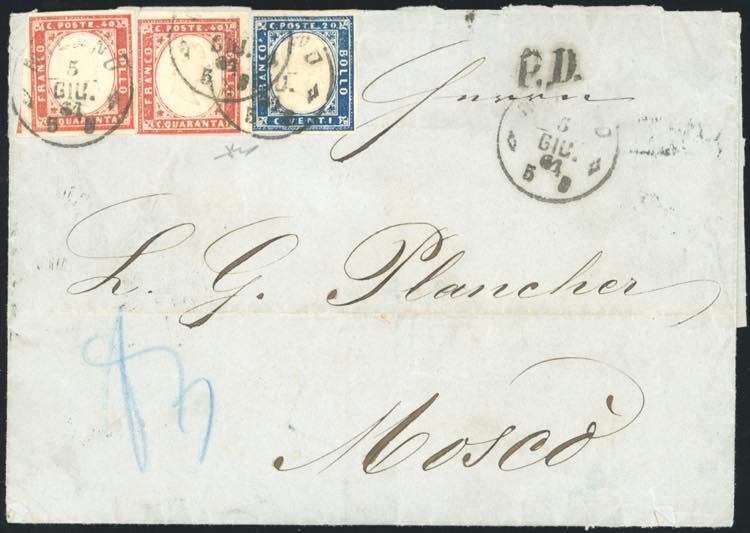 C. POSTE. 40
FRANCO
BOLLO
C. QUARANTA
C. POSTE. 40
FRANCO
BOLLO
C. QUARANTA
C. POSTE. 20
FRANCO
BOLLO
C. VENTI
MILANO
5
GIU.
61
5 S
GIU.
61
P.D.
5
GIU.
61
5 S
L. G. Plancher
Moscò